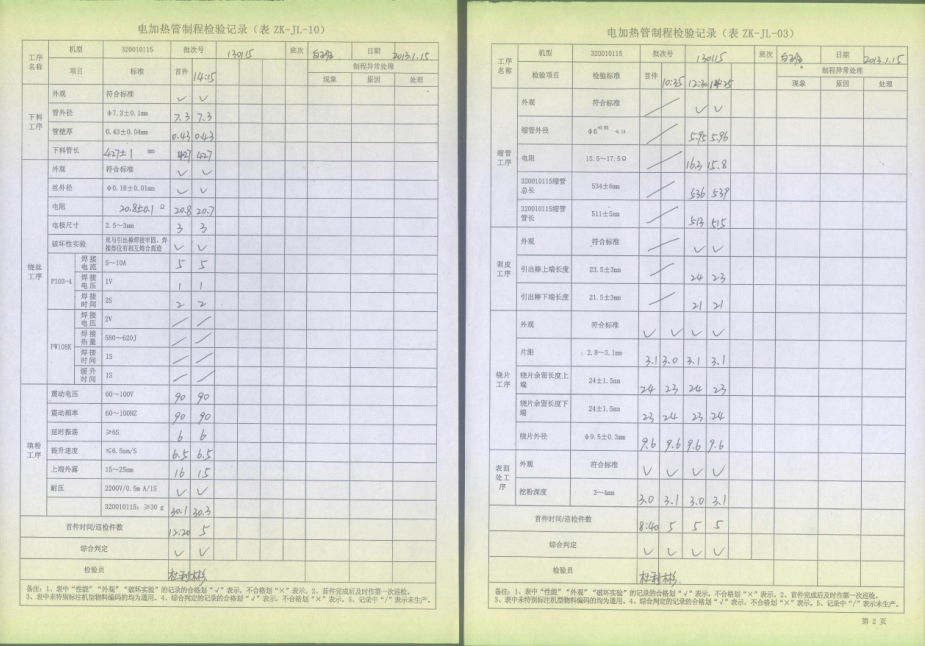 电加热管制程检验记录（表 ZK-JL-10）
工序名称 机型 320010115 批次号 130115 班次 日期 2013.1.15
项目 标准 首件 14:15 制程异常处理
现象 原因 处理
下料工序 外观 符合标准 √ √
管外径 φ7.3±0.1mm 7.3 7.3
管壁厚 0.43±0.04mm 0.43 0.43
下料管长 427±1 mm 427 427
绕丝工序 外观 符合标准 √ √
丝外径 φ0.18±0.01mm √ √
电阻 20.8±0.1 Ω 20.8 20.7
电极尺寸 2.5~3mm 3 3
破坏性实验 √ √
P103-4 焊接电流 5~10A 5 5
焊接电压 1V 1 1
焊接时间 2S 2 2
PW108K 焊接电压 2V / /
焊接热量 580~620J / /
焊接时间 1S / /
缓升时间 1S / /
填粉工序 震动电压 60~100V 90 90
震动频率 60~100HZ 90 90
延时振荡 ≥6S 6 6
提升速度 ≤6.5mm/S 6.5 6.5
上端外露 15~25mm 16 15
耐压 2200V/0.5m A/1S √ √
320010115：≥30 g 30.1 30.3
首件时间/巡检件数 12:20 5
综合判定 √ √
检验员
备注：1、表中“性能”“外观”“破坏实验”的记录的合格划“√”表示。不合格划“×”表示。2、首件完成后及时作第一次巡检。
3、表中未特别标注机型物料编码的均为通用。4、综合判定的记录的合格划“√”表示。不合格划“×”表示。5、记录中“/”表示未生产。
电加热管制程检验记录（表 ZK-JL-03）
工序名称 机型 320010115 批次号 130115 班次 日期 2013.1.15
检验项目 检验标准 首件 10:35 制程异常处理
现象 原因 处理
缩管工序 外观 符合标准 / √ √
缩管外径 / 5.95 5.96
电阻 15.5~17.5Ω / 16.3 15.8
320010115缩管总长 534±6mm / 536 539
320010115缩管管长 511±5mm / 513 515
剥皮工序 外观 符合标准 / √ √
引出棒上端长度 23.5±3mm / 24 23
引出棒下端长度 21.5±3mm / 21 21
绕片工序 外观 符合标准 √ √ √ √
片距 2.8~3.1mm 3.1 3.0 3.1 3.1
绕片余留长度上端 24±1.5mm 24 23 24 23
绕片余留长度下端 24±1.5mm 23 24 23 24
绕片外径 φ9.5±0.3mm 9.6 9.6 9.6 9.6
表面处工序 外观 符合标准 √ √ √ √
挖粉深度 3~4mm 3.0 3.1 3.0 3.1
首件时间/巡检件数 8:40 5 5 5
综合判定 √ √ √ √
检验员
备注：1、表中“性能”“外观”“破坏实验”的记录的合格划“√”表示。不合格划“×”表示。2、首件完成后及时作第一次巡检。
3、表中未特别标注机型物料编码的均为通用。4、综合判定的记录的合格划“√”表示。不合格划“×”表示。5、记录中“/”表示未生产。
第 2 页